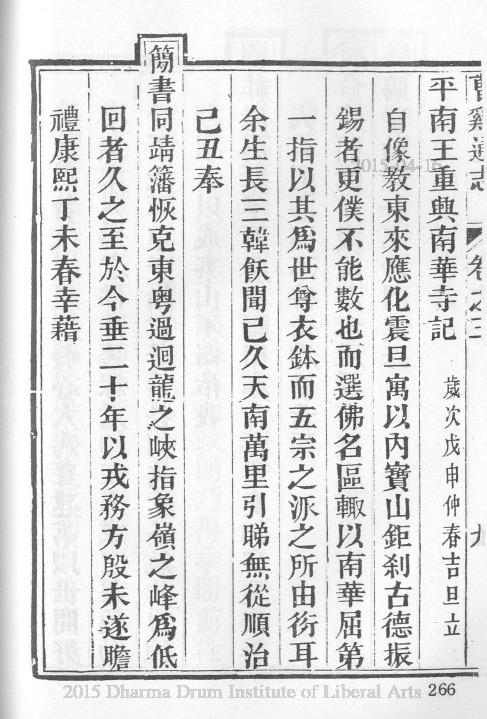 曹谿通志 卷之三 九
平南王重興南華寺記 歲次戊申仲春吉旦立
自像教東來應化震旦寓以內寶山鉅刹古德振
錫者更僕不能數也而選佛名區輙以南華屈第
一指以其爲世尊衣鉢而五宗之派之所由衍耳
余生長三韓飫聞已久天南萬里引睇無從順治
己丑奉
簡書同靖籓恢克東粵過迴龍之峽指象嶺之峰爲低
回者久之至於今垂二十年以戎務方殷未遂瞻
禮康熙丁未春幸藉
2015-04-16
2015 Dharma Drum Institute of Liberal Arts 266